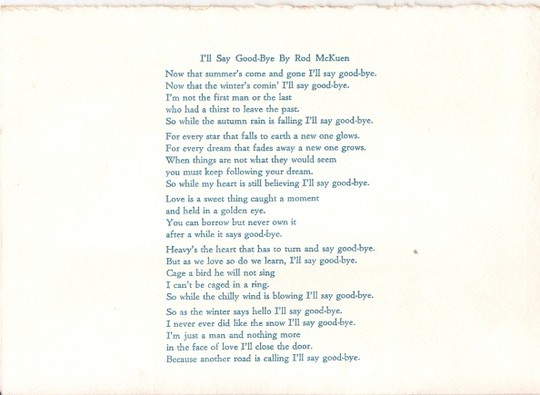 I'll Say Good-Bye By Rod McKuen
Now that summer's come and gone I'll say good-bye.
Now that the winter's comin' I'll say good-bye.
I'm not the first man or the last
who had a thirst to leave the past.
So while the autumn rain is falling I'll say good-bye.
For every star that falls to earth a new one glows.
For every dream that fades away a new one grows.
When things are not what they would seem
you must keep following your dream.
So while my heart is still believing I'll say good-bye.
Love is a sweet thing caught a moment
and held in a golden eye.
You can borrow but never own it
after a while it says good-bye.
Heavy's the heart that has to turn and say good-bye.
But as we love so do we learn, I'll say good-bye.
Cage a bird he will not sing
I can't be caged in a ring.
So while the chilly wind is blowing I'll say good-bye.
So as the winter says hello I'll say good-bye.
I never ever did like the snow I'll say good-bye.
I'm just a man and nothing more
in the face of love I'll close the door.
Because another road is calling I'll say good-bye.